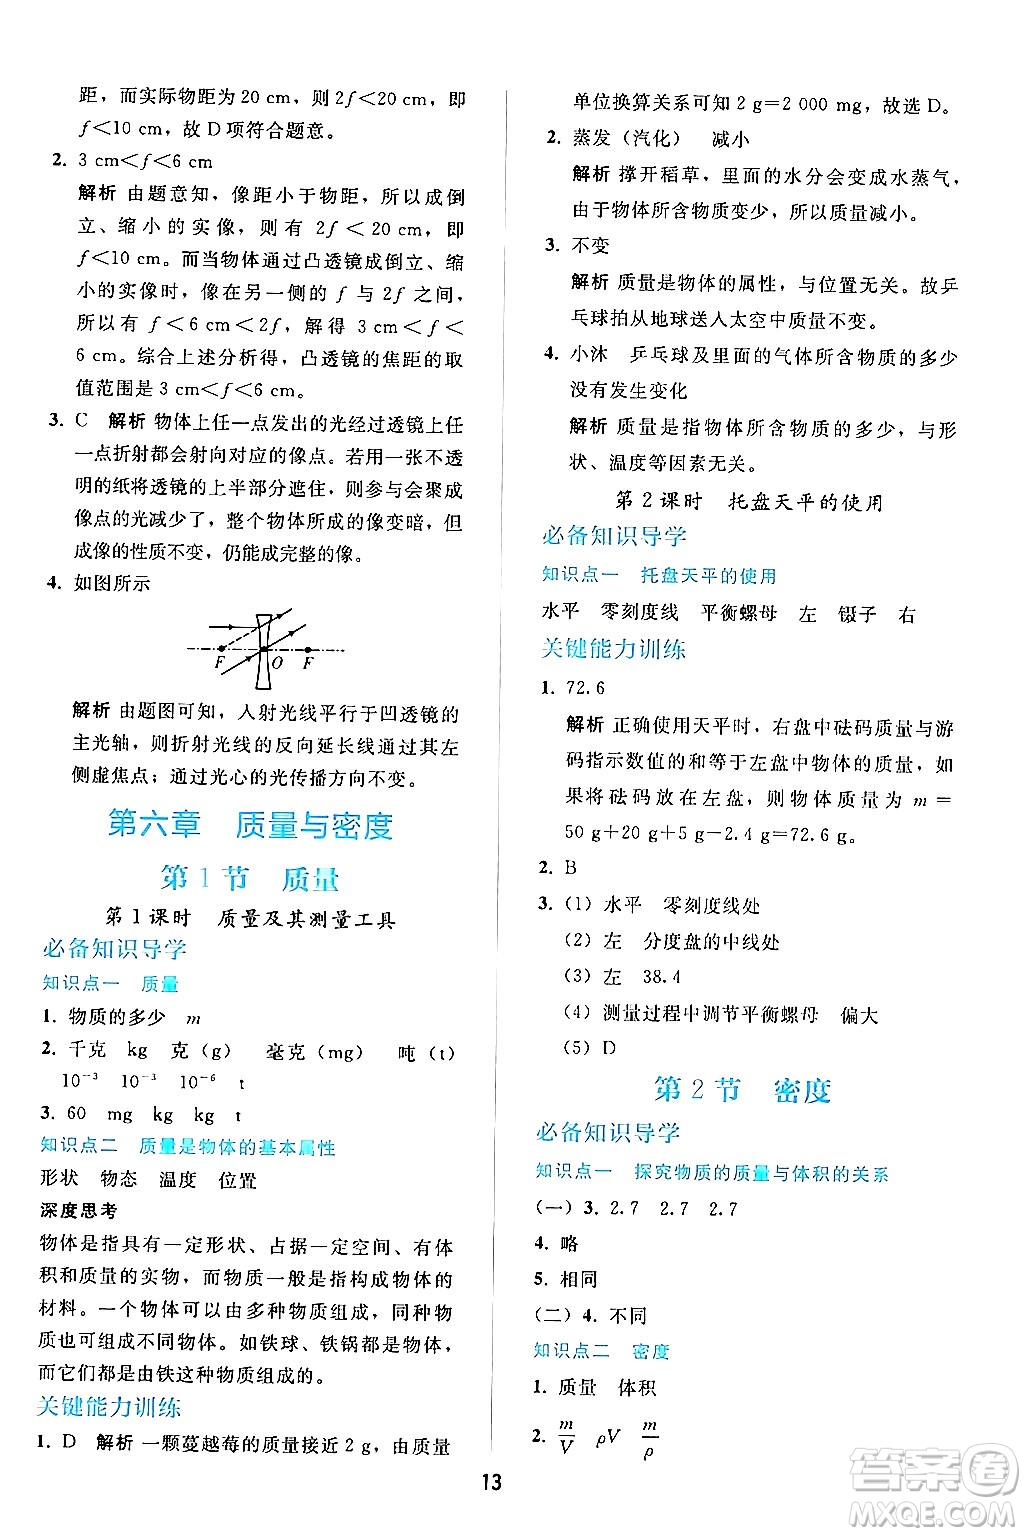 距，而实际物距为 20 cm，则 2f＜20 cm，即
f＜10 cm，故 D 项符合题意。
2. 3 cm＜f＜6 cm
解析 由题意知，像距小于物距，所以成倒
立、缩小的实像，由图可知 2f＜20 cm，即
f＜10 cm。而当物体通过凸透镜成倒立、缩
小的实像时，像在另一侧的 f 与 2f 之间，
所以有 f＜6 cm＜2f，解得 3 cm＜f＜
6 cm。综合上述分析得，凸透镜的焦距的取
值范围是 3 cm＜f＜6 cm。
3. C 解析 物体上任一点发出的光经过透镜上任
一点折射都会射向对应的像点。若用一张不透
明的纸将透镜的上半部分遮住，则参与会聚成
像点的光减少了，整个物体所成的像变暗，但
成像的性质不变，仍能成完整的像。
4. 如图所示
F O F
解析 由题图可知，入射光线平行于凹透镜的
主光轴，则折射光线的反向延长线过其左
侧虚焦点；通过光心的光传播方向不变。
第六章 质量与密度
第 1 节 质量
第 1 课时 质量及其测量工具
必备知识导学
知识点一 质量
1. 物质的多少 m
2. 千克 kg 克（g） 毫克（mg） 吨（t）
10⁻³ 10⁻³ 10⁻⁶ t
3. 60 mg kg kg t
知识点二 质量是物体的基本属性
形状 物态 温度 位置
深度思考
物体是指具有一定形状、占据一定空间、有体
积和质量的实物，而物质一般是指构成物体的
材料。一个物体可以由多种物质组成，同种物
质也可组成不同物体。如铁球、铁锅都是物体，
而它们都是由铁这种物质组成的。
关键能力训练
1. D 解析 一颗蔓越莓的质量接近 2 g，由质量
单位换算关系可知 2 g＝2 000 mg，故选 D。
2. 蒸发（汽化） 减小
解析 撑开稻草，里面的水分会变成水蒸气，
由于物体所含物质变少，所以质量减小。
3. 不变
解析 质量是物体的属性，与位置无关。故乒
乓球拍从地球送入太空中质量不变。
4. 小沐 乒乓球及里面的气体所含物质的多少
没有发生变化
解析 质量是指物体所含物质的多少，与形
状、温度等因素无关。
第 2 课时 托盘天平的使用
必备知识导学
知识点一 托盘天平的使用
水平 零刻度线 平衡螺母 左 镊子 右
关键能力训练
1. 72.6
解析 正确使用天平时，右盘中砝码质量与游
码指示数值的和等于左盘中物体的质量，如
果将砝码放在左盘，则物体质量为 m＝
50 g＋20 g＋5 g－2.4 g＝72.6 g。
2. B
3.（1）水平 零刻度线处
（2）左 分度盘的中线处
（3）左 38.4
（4）测量过程中调节平衡螺母 偏大
（5）D
第 2 节 密度
必备知识导学
知识点一 探究物质的质量与体积的关系
（一）3. 2.7 2.7 2.7
4. 略
5. 相同
（二）4. 不同
知识点二 密度
1. 质量 体积
2. m/V ρV m/ρ
13
答案圈
MXQE.COM